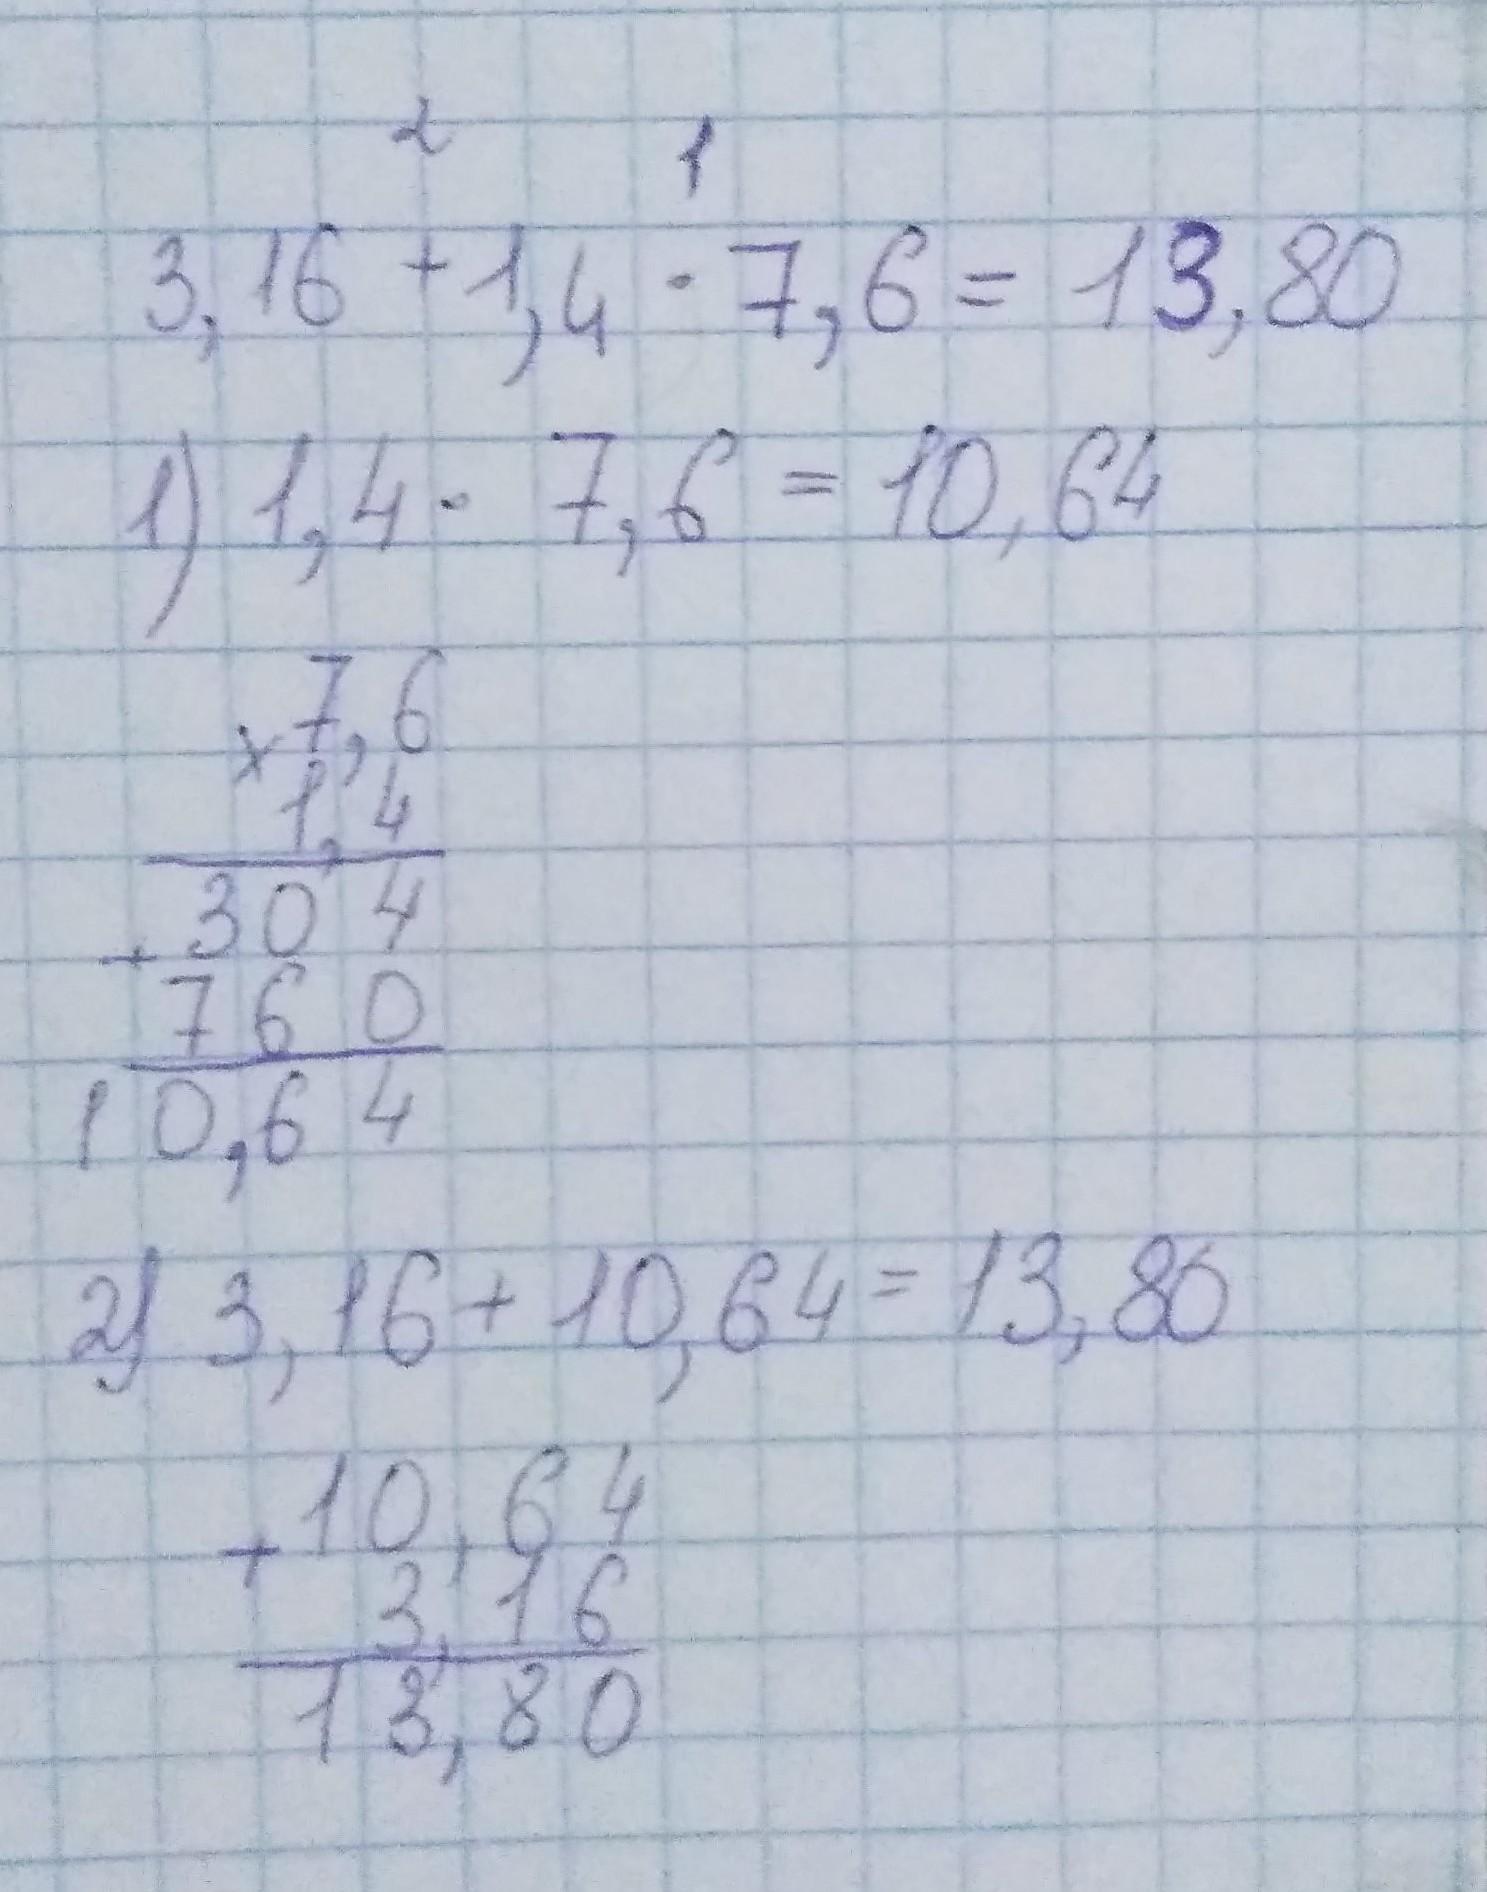 2 1
3,16 + 1,4 · 7,6 = 13,80
1) 1,4 · 7,6 = 10,64
x 7,6
1,4
304
+
760
10,64
2) 3,16 + 10,64 = 13,80
10,64
+
3,16
13,80